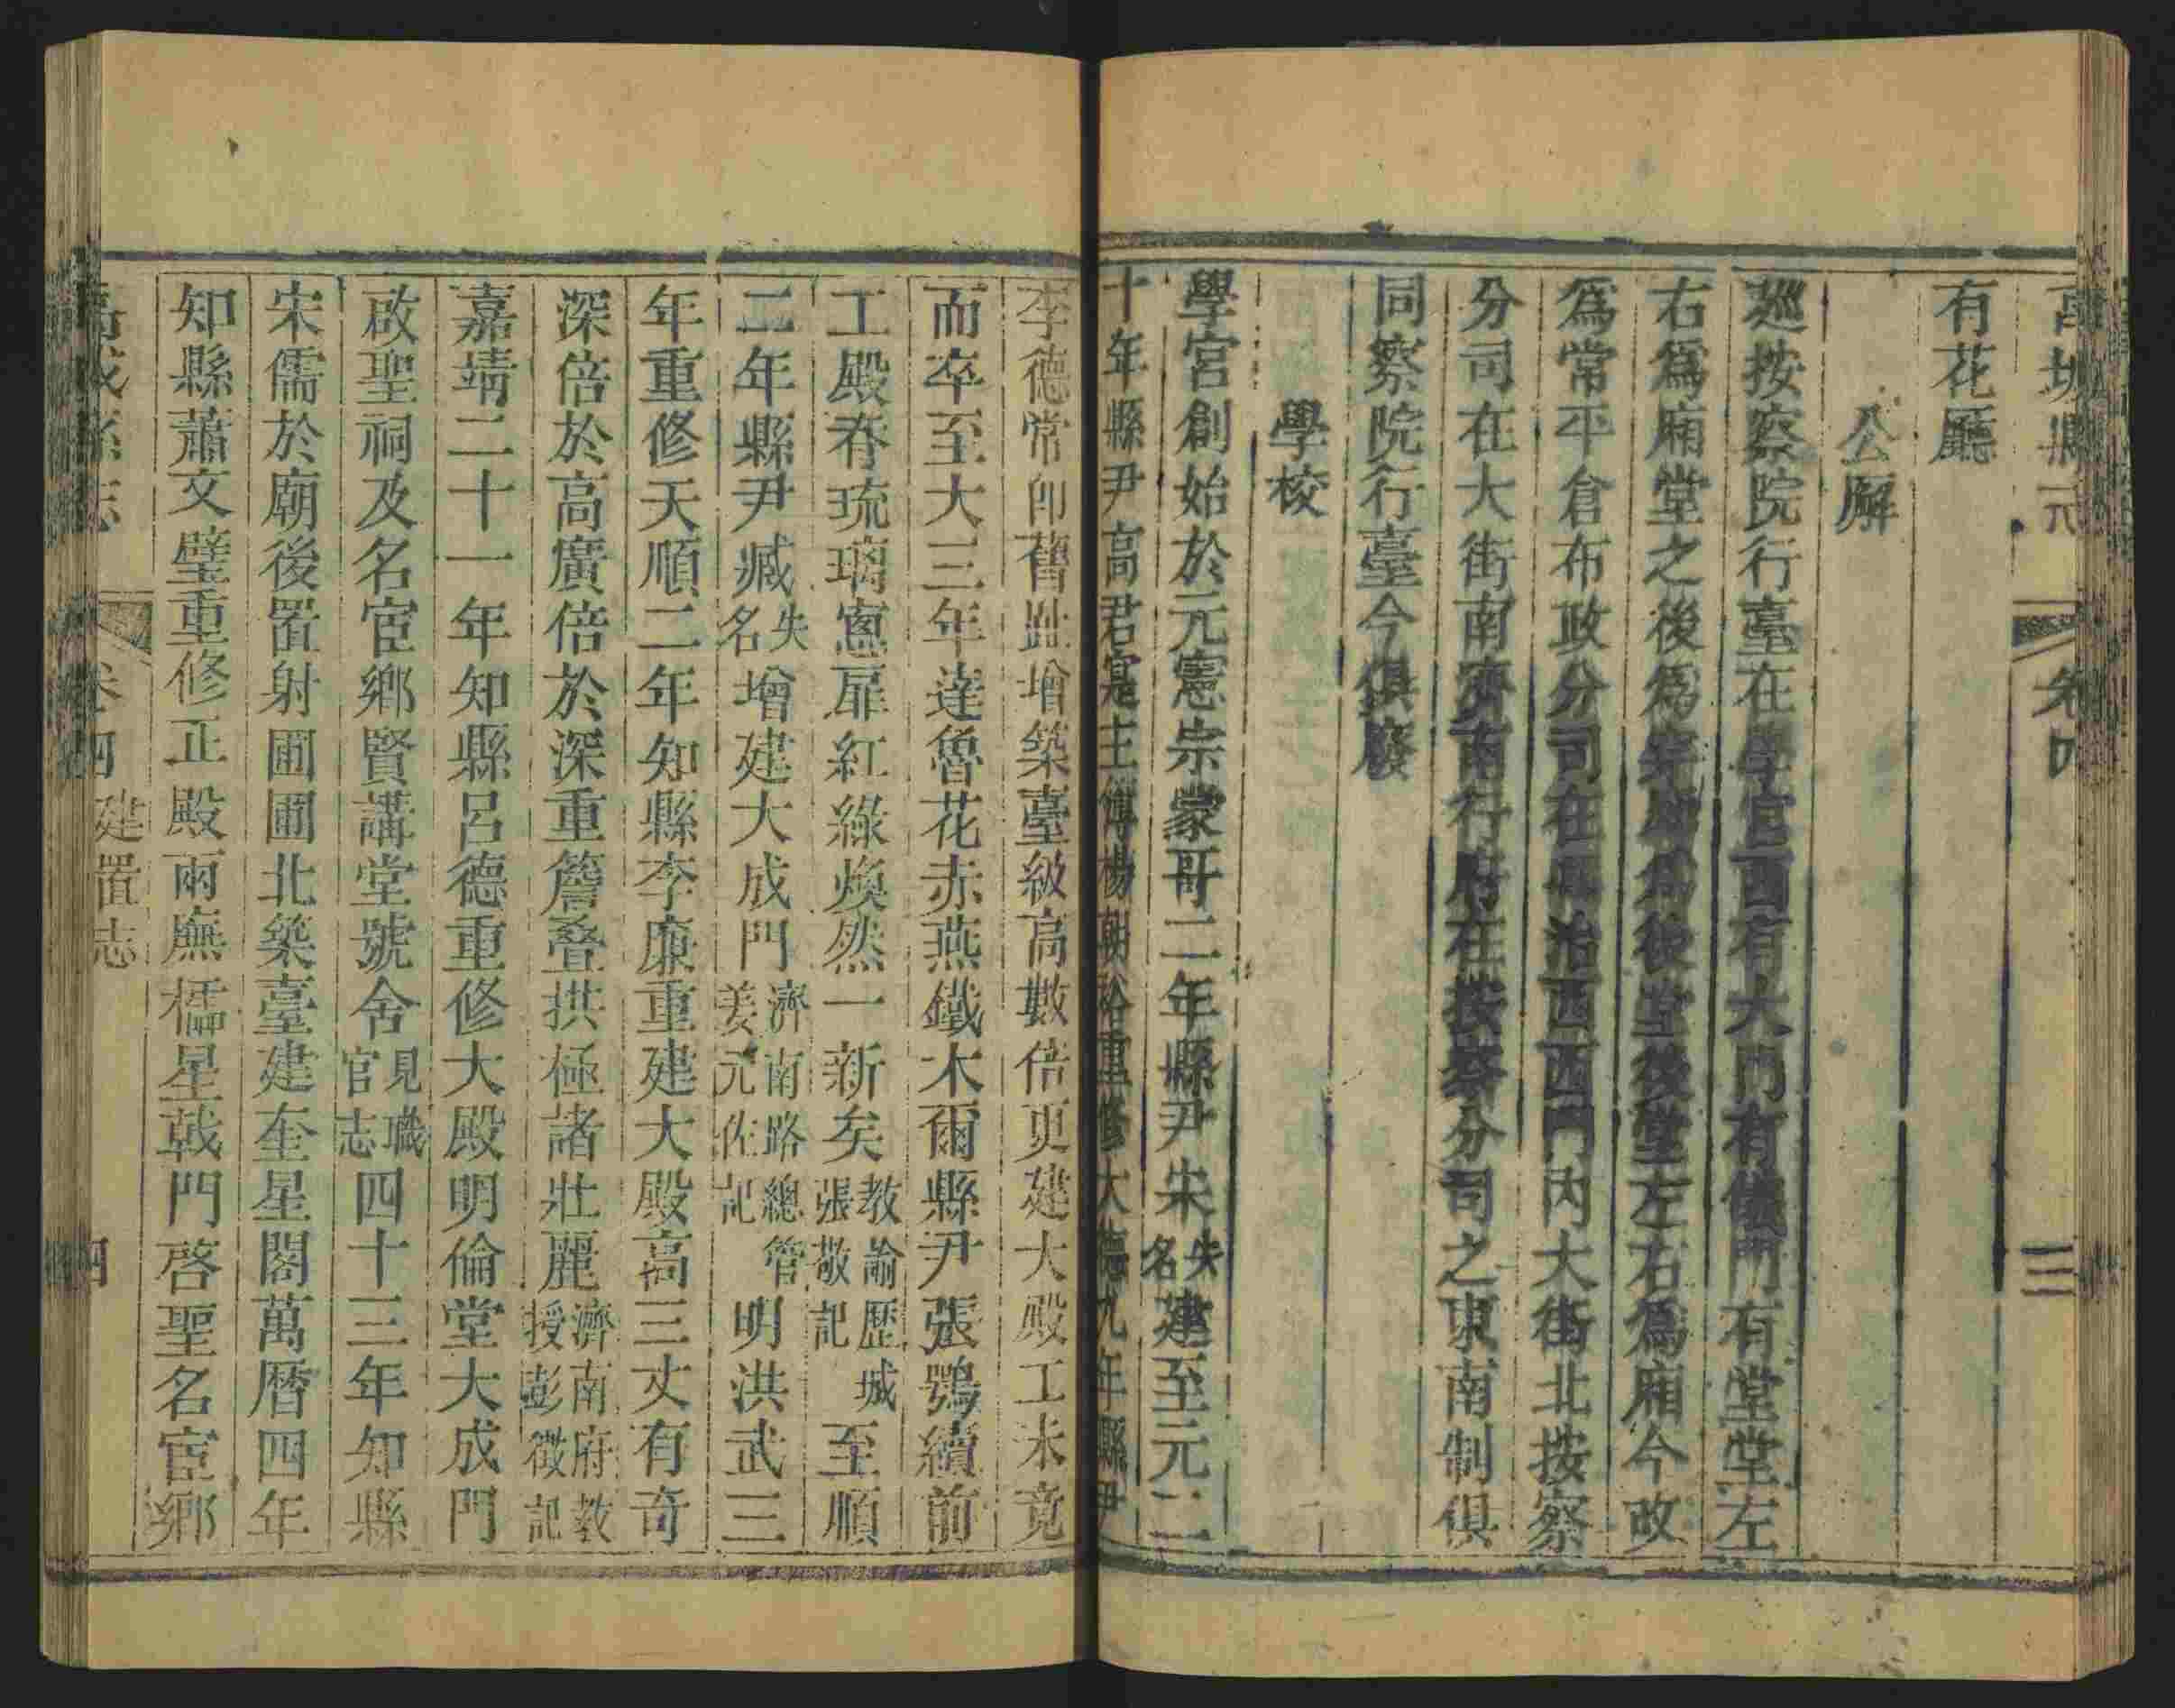 禹城縣志 卷四 三
有花廳
公廨
巡按察院行臺在學宮西有大門有儀門有堂堂左
右爲廂堂之後爲穿廊爲後堂後堂左右爲廂今改
爲常平倉布政分司在縣治西西門內大街北按察
分司在大街南濟南行府在按察分司之東南制俱
同察院行臺今俱廢
學校
學宮創始於元憲宗蒙哥二年縣尹宋失名建至元二
十年縣尹高君寔主簿楊朝裕重修大德九年縣尹
李德常卽舊趾增築臺級高數倍更建大殿工未竟
而卒至大三年達魯花赤燕鐵木爾縣尹張鶚續前
工殿脊琉璃窻扉紅綠煥然一新矣教諭歷城張敬記至順
二年縣尹臧失名增建大成門濟南路總管姜元佐記明洪武三
年重修天順二年知縣李廉重建大殿高三丈有奇
深倍於高廣倍於深重簷疊拱極諸壯麗濟南府教授彭徵記
嘉靖二十一年知縣呂德重修大殿明倫堂大成門
啟聖祠及名宦鄉賢講堂號舍見職官志四十三年知縣
宋儒於廟後置射圃圃北築臺建奎星閣萬曆四年
知縣蕭文璧重修正殿兩廡櫺星戟門啓聖名宦鄉
禹城縣志 卷四 建置志 四